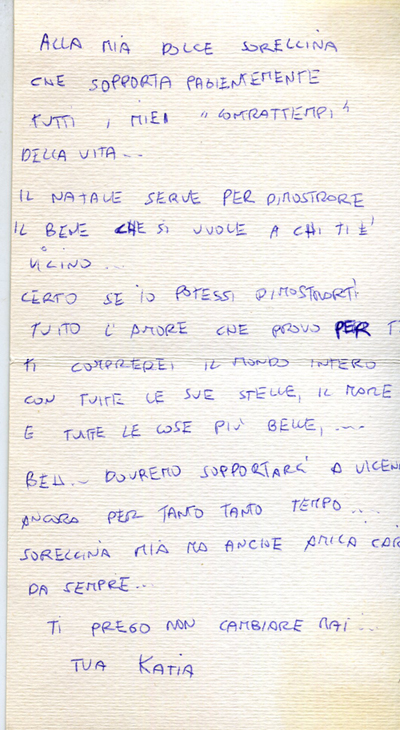 ALLA MIA DOLCE SORELLINA
CHE SOPPORTA PAZIENTEMENTE
TUTTI I MIEI "CONTRATTEMPI"
DELLA VITA...
IL NATALE SERVE PER DIMOSTRARE
IL BENE CHE SI VUOLE A CHI TI È
VICINO...
CERTO SE IO POTESSI DIMOSTRARTI
TUTTO L'AMORE CHE PROVO PER T
TI COMPREREI IL MONDO INTERO
CON TUTTE LE SUE STELLE, IL MARE
E TUTTE LE COSE PIÙ BELLE, ....
BEH... DOVREMO SOPPORTARCI A VICEN
ANCORA PER TANTO TANTO TEMPO....
SORELLINA MIA MA ANCHE AMICA CAR
DA SEMPRE...
TI PREGO NON CAMBIARE MAI...
TUA KATIA